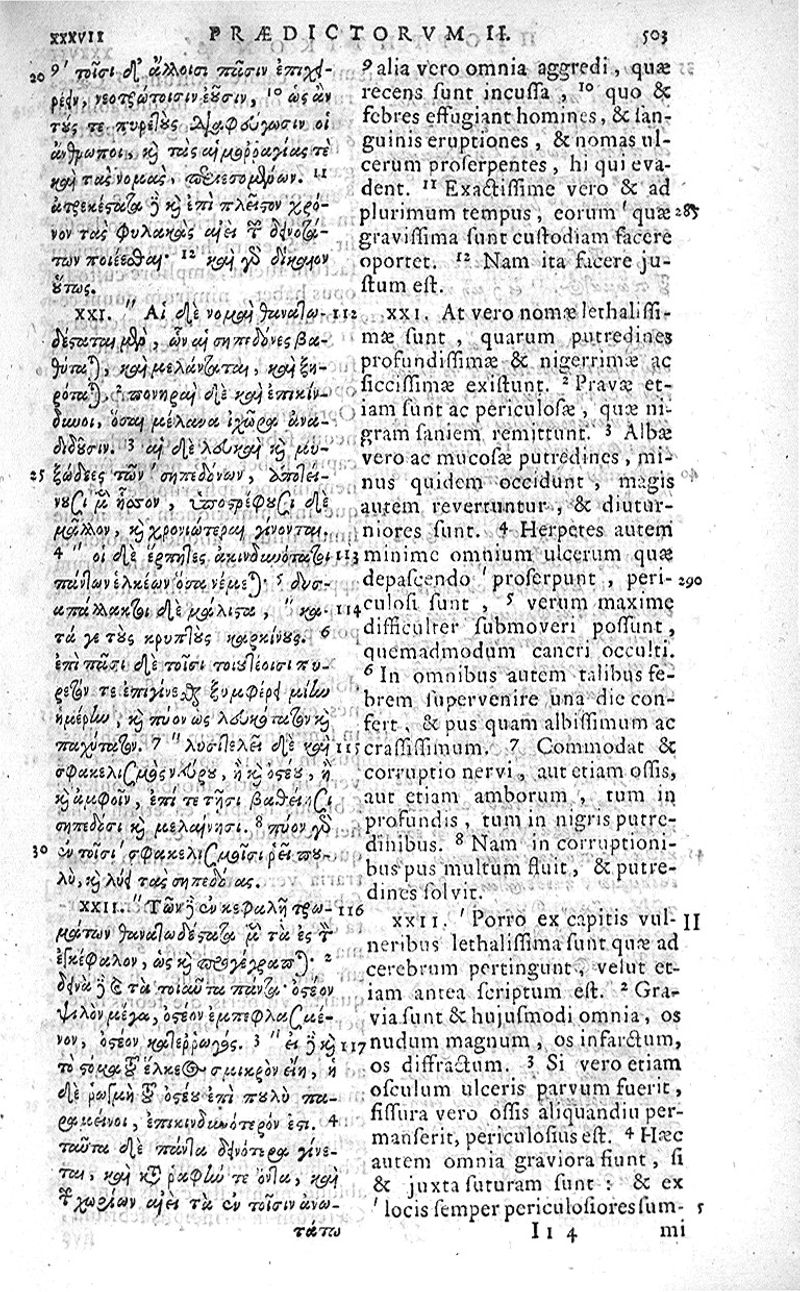 XXXVII PRÆDICTORVM II. 503
20 9' τοῖσι δὲ ἄλλοισι πᾶσιν ἐπιχει-
ρέειν, νεοτρώτοισιν ἐοῦσιν, 10 ὡς ἂν
τούς τε πυρετοὺς διαφύγωσιν οἱ
ἄνθρωποι, καὶ τὰς αἱμορραγίας τε
καὶ τὰς νομάς, 11
ἀτρεκέστατα δὲ καὶ ἐπὶ πλεῖστον χρό-
νον τὰς φυλακὰς αἰεὶ τῶν δεινοτά-
των ποιέεσθαι· 12 καὶ γὰρ δίκαιον
οὕτως.
XXI. " Αἱ δὲ νομαὶ θανατω- 112
δέσταται μὲν, ὧν αἱ σηπεδόνες βα-
θύταται, καὶ μελάνταται, καὶ ξη-
ρόταται, πονηραὶ δὲ καὶ ἐπικίν-
δυνοι, ὅσαι μέλανα ἰχῶρα ἀνα-
διδοῦσιν. 3 αἱ δὲ λευκαὶ καὶ μυ-
25 ξώδεες τῶν ' σηπεδόνων, ἀποκτεί-
νουσι μὲν ἧσσον, ὑποστρέφουσι δὲ
μᾶλλον, καὶ χρονιώτεραι γίνονται.
4 " οἱ δὲ ἕρπητες ἀκινδυνότατοι 113
πάντων ἑλκέων ὅσα νέμεται· 5 δυσ-
απάλλακτοι δὲ μάλιστα, " κα- 114
τά γε τοὺς κρυπτοὺς καρκίνους. 6
ἐπὶ πᾶσι δὲ τοῖσι τοιουτέοισι πυ-
ρετόν τε ἐπιγίνεσθαι ξυμφέρει μίην
ἡμέρην, καὶ πύον ὡς λευκότατον καὶ
παχύτατον. 7 " λυσιτελεῖ δὲ καὶ 115
σφακελισμὸς νεύρου, ἢ καὶ ὀστέου, ἢ
καὶ ἀμφοῖν, ἐπί τε τῇσι βαθείῃσι
σηπεδόσι καὶ μελαίνῃσι. 8 πύον γὰρ
30 ἐν τοῖσι ' σφακελισμοῖσι ῥέει που-
λὺ, καὶ λύει τὰς σηπεδόνας.
XXII. " Τῶν δὲ ἐν κεφαλῇ τρω- 116
μάτων θανατωδέστατα μὲν τὰ ἐς τὸν
ἐγκέφαλον, ὡς καὶ προγέγραπται· 2
δεινὰ δὲ καὶ τὰ τοιαῦτα πάντα· ὀστέον
ψιλὸν μέγα, ὀστέον ἐμπεφλασμέ-
νον, ὀστέον κατερρωγός. 3 " εἰ δὲ καὶ 117
τὸ στόμα τοῦ ἕλκεος σμικρὸν εἴη, ἡ
δὲ ῥωγμὴ τοῦ ὀστέου ἐπὶ πουλὺ πα-
ραμείνοι, ἐπικινδυνότερόν ἐστι. 4
ταῦτα δὲ πάντα δεινότερα γίνε-
ται, καὶ κατὰ ῥαφήν τε ὄντα, καὶ
τῶν χωρίων αἰεὶ τὰ ἐν τοῖσιν ἀνω-
τάτω
9 alia vero omnia aggredi, quæ
recens sunt incussa, 10 quo &
febres effugiant homines, & san-
guinis eruptiones, & nomas ul-
cerum proserpentes, hi qui eva-
dent. 11 Exactissime vero & ad
plurimum tempus, eorum ' quæ 285
gravissima sunt custodiam facere
oportet. 12 Nam ita facere ju-
stum est.
XXI. At vero nomæ lethalissi-
mæ sunt, quarum putredines
profundissimæ & nigerrimæ ac
siccissimæ existunt. 2 Pravæ et-
iam sunt ac periculosæ, quæ ni-
gram saniem remittunt. 3 Albæ
vero ac mucosæ putredines, mi-
nus quidem occidunt, magis
autem revertuntur, & diutur-
niores sunt. 4 Herpetes autem
minime omnium ulcerum quæ
depascendo ' proserpunt, peri- 290
culosi sunt, 5 verum maxime
difficulter submoveri possunt,
quemadmodum cancri occulti.
6 In omnibus autem talibus fe-
brem supervenire una die con-
fert, & pus quam albissimum ac
crassissimum. 7 Commodat &
corruptio nervi, aut etiam ossis,
aut etiam amborum, tum in
profundis, tum in nigris putre-
dinibus. 8 Nam in corruptioni-
bus pus multum fluit, & putre-
dines solvit.
XXII. ' Porro ex capitis vul- II
neribus lethalissima sunt quæ ad
cerebrum pertingunt, velut et-
iam antea scriptum est. 2 Gra-
via sunt & hujusmodi omnia, os
nudum magnum, os infarctum,
os diffractum. 3 Si vero etiam
osculum ulceris parvum fuerit,
fissura vero ossis aliquandiu per-
manserit, periculosius est. 4 Hæc
autem omnia graviora fiunt, si
& juxta suturam sunt: & ex
' locis semper periculosiores sum- 5
Ii 4 mi